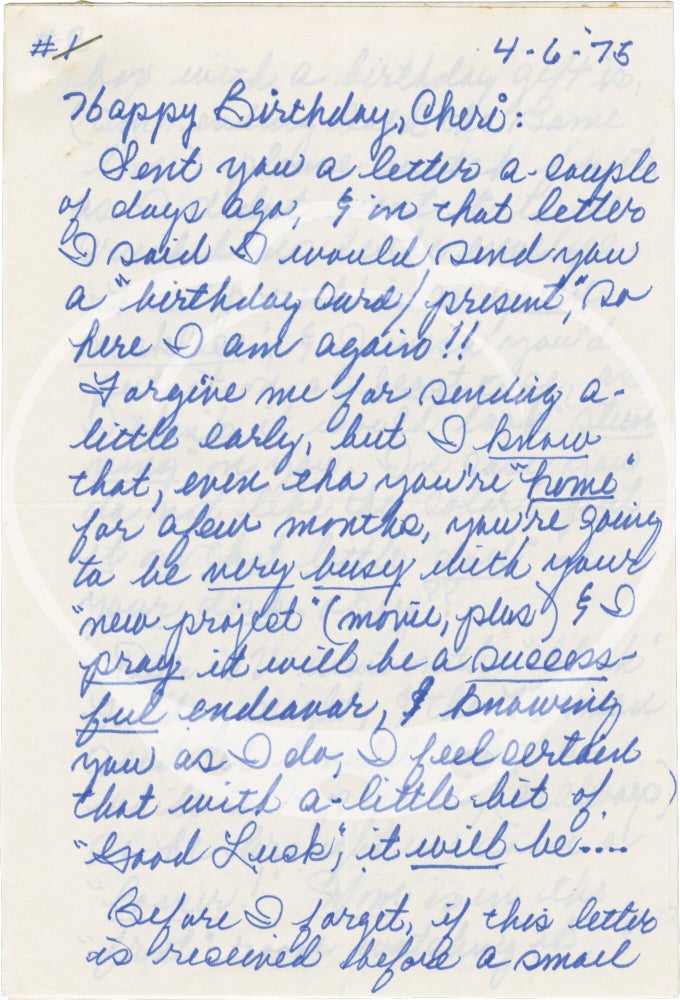 #1 4-6-75
Happy Birthday, Cheri:
Sent you a letter a-couple
of days ago, & in that letter
I said I would send you
a "birthday card/present", so
here I am again!!
Forgive me for sending a-
little early, but I know
that, even tho you're "home"
for a few months, you're going
to be very busy with your
"new project" (movie, plus) & I
pray it will be a success-
ful endeavor, & knowing
you as I do, I feel certain
that with a-little-bit of
"Good Luck", it will be....
Before I forget, if this letter
is received before a small